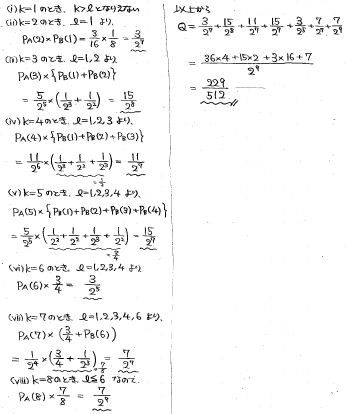 (i) k=1のとき、k>lとならない
(ii) k=2のとき、l=1より、
PA(2)×PB(1)=3/16×1/8=3/2^7
(iii) k=3のとき、l=1,2より
PA(3)×{PB(1)+PB(2)}
=5/2^5×(1/2^3+1/2^2)=15/2^8
(iv) k=4のとき、l=1,2,3より、
PA(4)×{PB(1)+PB(2)+PB(3)}
=11/2^6×(1/2^3+1/2^2+1/2^3)=11/2^7
=1/2
(v) k=5のとき、l=1,2,3,4より
PA(5)×{PB(1)+PB(2)+PB(3)+PB(4)}
=5/2^5×(1/2^3+1/2^2+1/2^3+1/2^2)=15/2^7
=3/4
(vi) k=6のとき、l=1,2,3,4より
PA(6)×3/4=3/2^5
(vii) k=7のとき、l=1,2,3,4,6より、
PA(7)×(3/4+PB(6))
=1/2^4×(3/4+1/2^3)=7/2^7
=7/8
(viii) k=8のとき、l≦6なので、
PA(8)×7/8=7/2^9
以上から
Q=3/2^7+15/2^8+11/2^7+15/2^7+3/2^5+7/2^7+7/2^9
=36×4+15×2+3×16+7/2^9
=229/512